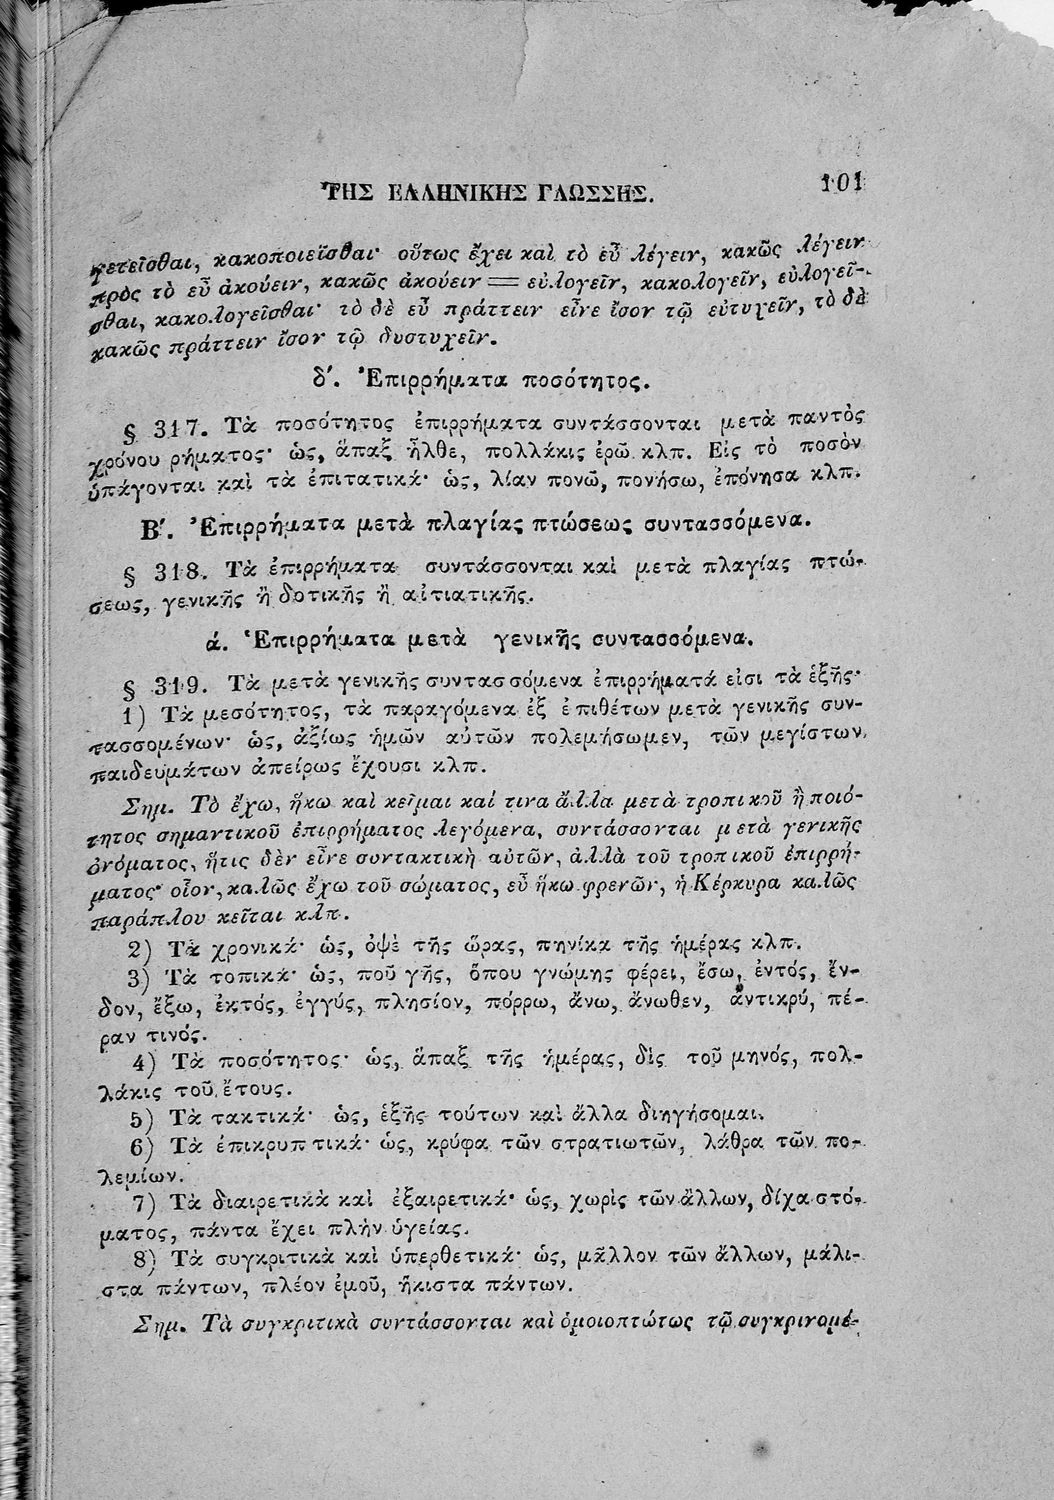 ΤΗΣ ΕΛΛΗΝΙΚΗΣ ΓΛΩΣΣΗΣ. 101
γετεῖσθαι, κακοποιεῖσθαι· οὕτως ἔχει καὶ τὸ εὖ λέγειν, κακῶς λέγειν
πρὸς τὸ εὖ ἀκούειν, κακῶς ἀκούειν = εὐλογεῖν, κακολογεῖν, εὐλογεῖ-
σθαι, κακολογεῖσθαι· τὸ δὲ εὖ πράττειν εἶνε ἴσον τῷ εὐτυχεῖν, τὸ δὲ
κακῶς πράττειν ἴσον τῷ δυστυχεῖν.
δ΄. Ἐπιρρήματα ποσότητος.
§ 317. Τὰ ποσότητος ἐπιρρήματα συντάσσονται μετὰ παντὸς
χρόνου ρήματος· ὡς, ἅπαξ ἦλθε, πολλάκις ἐρῶ κλπ. Εἰς τὸ ποσὸν
ὑπάγονται καὶ τὰ ἐπιτατικά· ὡς, λίαν πονῶ, πονήσω, ἐπόνησα κλπ.
Β΄. Ἐπιρρήματα μετὰ πλαγίας πτώσεως συντασσόμενα.
§ 318. Τὰ ἐπιρρήματα συντάσσονται καὶ μετὰ πλαγίας πτώ-
σεως, γενικῆς ἢ δοτικῆς ἢ αἰτιατικῆς.
ά. Ἐπιρρήματα μετὰ γενικῆς συντασσόμενα.
§ 319. Τὰ μετὰ γενικῆς συντασσόμενα ἐπιρρήματά εἰσι τὰ ἑξῆς·
1) Τὰ μεσότητος, τὰ παραγόμενα ἐξ ἐπιθέτων μετὰ γενικῆς συν-
τασσομένων· ὡς, ἀξίως ἡμῶν αὐτῶν πολεμήσωμεν, τῶν μεγίστων
παιδευμάτων ἀπείρως ἔχουσι κλπ.
Σημ. Τὸ ἔχω, ἥκω καὶ κεῖμαι καί τινα ἄλλα μετὰ τροπικοῦ ἢ ποιό-
τητος σημαντικοῦ ἐπιρρήματος λεγόμενα, συντάσσονται μετὰ γενικῆς
ὀνόματος, ἥτις δὲν εἶνε συντακτικὴ αὐτῶν, ἀλλὰ τοῦ τροπικοῦ ἐπιρρή-
ματος· οἷον, καλῶς ἔχω τοῦ σώματος, εὖ ἥκω φρενῶν, ἡ Κέρκυρα καλῶς
παράπλου κεῖται κλπ.
2) Τὰ χρονικά· ὡς, ὀψὲ τῆς ὥρας, πηνίκα τῆς ἡμέρας κλπ.
3) Τὰ τοπικά· ὡς, ποῦ γῆς, ὅπου γνώμης φέρει, ἔσω, ἐντός, ἔν-
δον, ἔξω, ἐκτός, ἐγγύς, πλησίον, πόρρω, ἄνω, ἄνωθεν, ἀντικρύ, πέ-
ραν τινός.
4) Τὰ ποσότητος· ὡς, ἅπαξ τῆς ἡμέρας, δὶς τοῦ μηνός, πολ-
λάκις τοῦ ἔτους.
5) Τὰ τακτικά· ὡς, ἑξῆς τούτων καὶ ἄλλα διηγήσομαι.
6) Τὰ ἐπικρυπτικά· ὡς, κρύφα τῶν στρατιωτῶν, λάθρα τῶν πο-
λεμίων.
7) Τὰ διαιρετικὰ καὶ ἐξαιρετικά· ὡς, χωρὶς τῶν ἄλλων, δίχα στό-
ματος, πάντα ἔχει πλὴν ὑγείας.
8) Τὰ συγκριτικὰ καὶ ὑπερθετικά· ὡς, μᾶλλον τῶν ἄλλων, μάλι-
στα πάντων, πλέον ἐμοῦ, ἥκιστα πάντων.
Σημ. Τὰ συγκριτικὰ συντάσσονται καὶ ὁμοιοπτώτως τῷ συγκρινομέ-